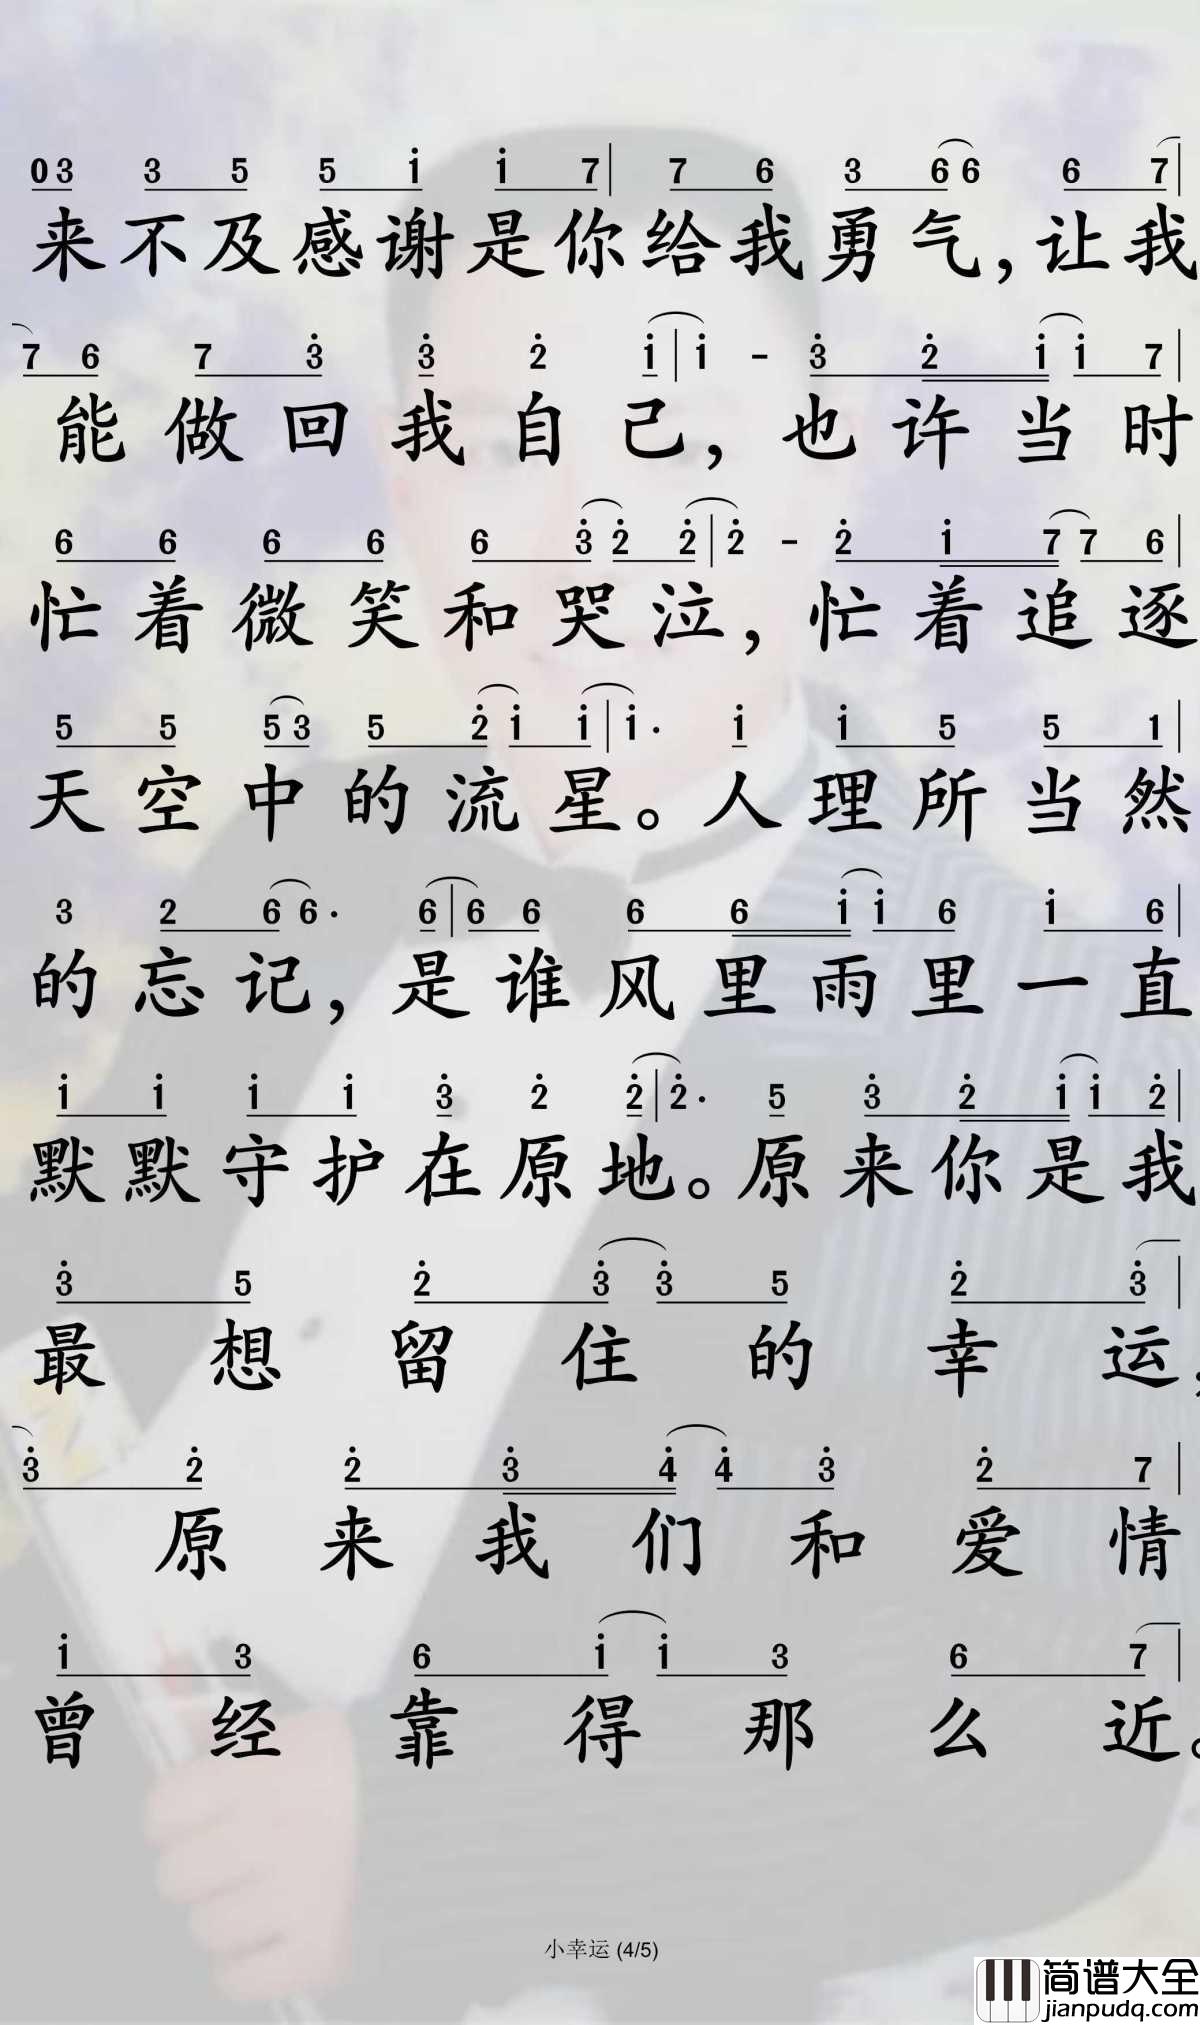 03 3 5 5 i i 7 | 7 6 3 6 6 6 7 |
来不及感谢是你给我勇气,让我
7 6 7 3 3 2 i | i - 3 2 i i 7 |
能做回我自己,也许当时
6 6 6 6 6 3 2 2 | 2 - 2 i 7 7 6 |
忙着微笑和哭泣,忙着追逐
5 5 5 3 5 2 i i | i . i i 5 5 1
天空中的流星。人理所当然
3 2 6 6 . 6 | 6 6 6 6 i i 6 i 6 |
的忘记,是谁风里雨里一直
i i i i 3 2 2 | 2 . 5 3 2 i i 2 |
默默守护在原地。原来你是我
3 5 2 3 3 5 2 3 |
最想留住的幸运,
3 2 2 3 4 4 3 2 7 |
原来我们和爱情
i 3 6 i i 3 6 7 |
曾经靠得那么近。
小幸运 (4/5)
简谱大全
jianpudq.com